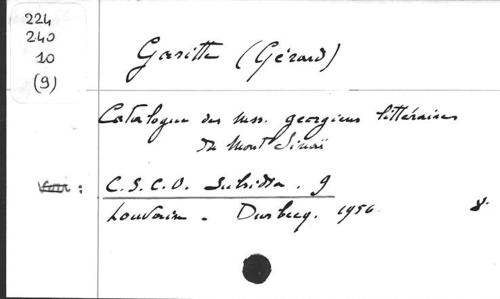 224
240
10
(9)
Garitte (Gérard)
Catalogue des mss. georgiens littéraires
du Mont Sinaï
Voir :
C.S.C.O. Subsidia. 9
Louvain. Durbecq. 1956. 8.